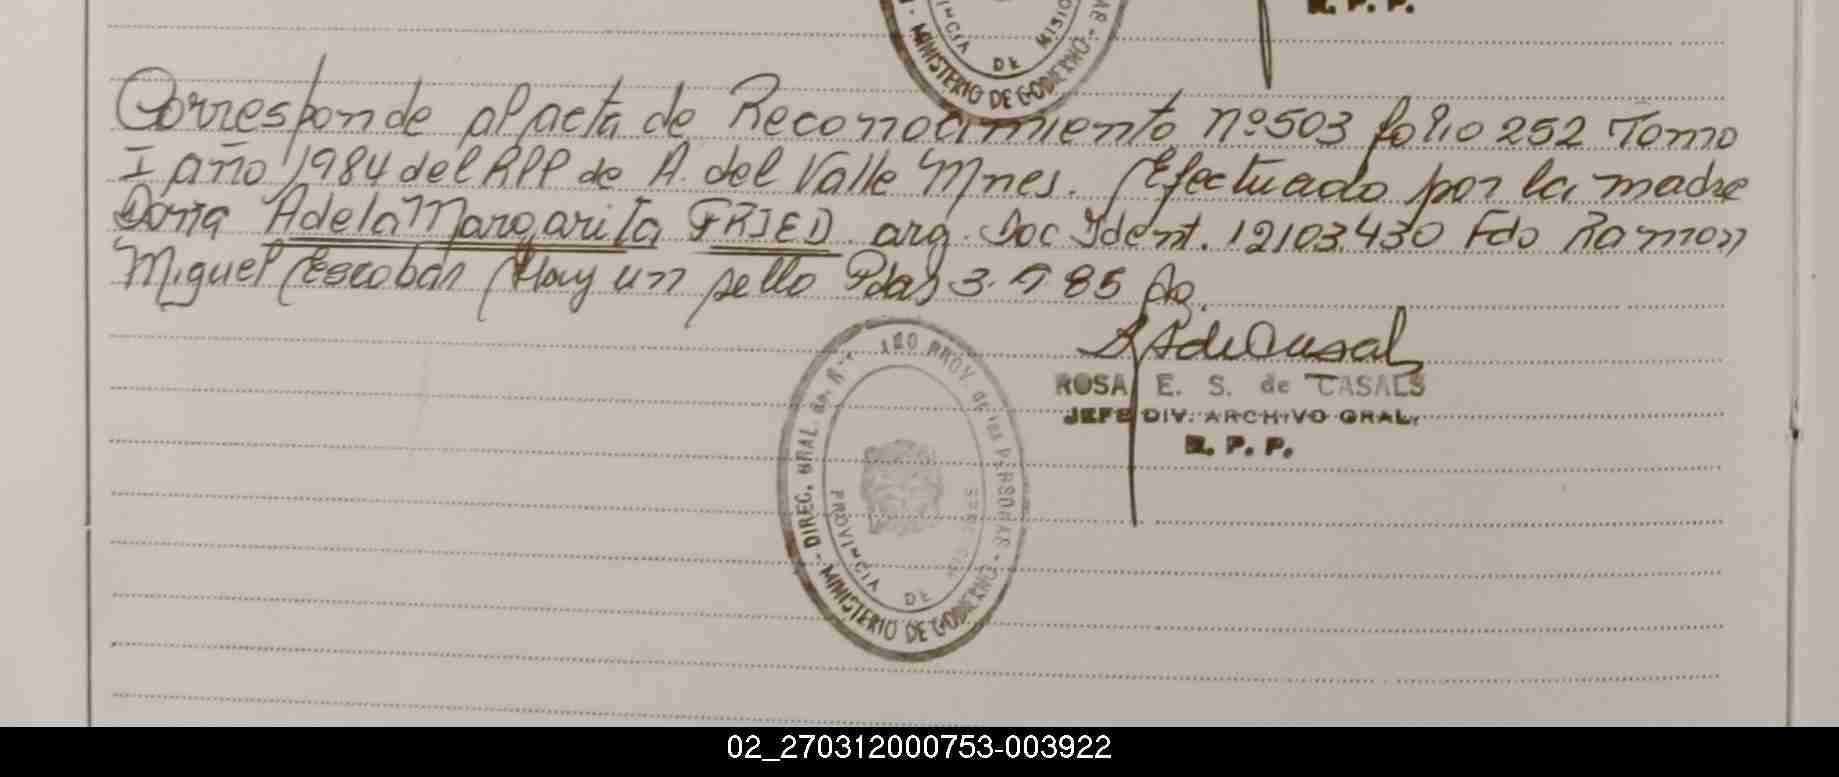 R. P. P.
INCIA DE MISIO
MINISTERIO DE GOBIERNO
Corresponde al acta de Reconocimiento nº 503 folio 252 Tomo
I año 1984 del RPP de A. del Valle Mnes. Efectuado por la madre
Doña Adela Margarita FRIED. arg. Doc Ident. 12103.430 Fdo Ramon
Miguel Escobar Hay un sello Pdas 3. 85
ROSA E. S. de CASALS
JEFE DIV. ARCHIVO GRAL.
R. P. P.
DIREC. GRAL. de PROV. de las PERSONAS
PROVINCIA DE
MINISTERIO DE GOBIERNO
02_270312000753-003922